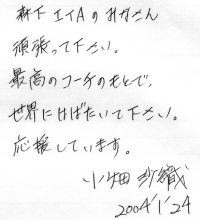 森下エイAのみなさん
頑張って下さい。
最高のコーチのもとで、
世界にはばたいて下さい。
応援しています。
小畑沙織
2004/1/24